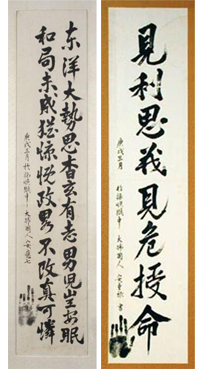 見利思義見危授命
庚戌三月 於旅順獄中 大韓國人 安重根 書
東洋大勢思杳玄有志男兒豈安眠
和局未成猶慷慨政略不改真可憐
庚戌三月 於旅順獄中 大韓國人 安重根 書